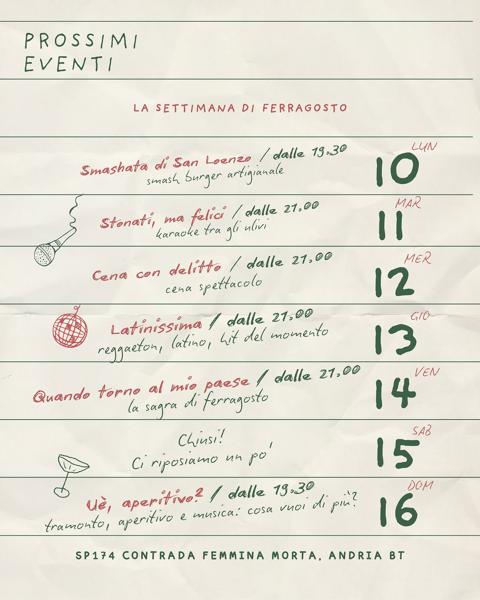 PROSSIMI
EVENTI
LA SETTIMANA DI FERRAGOSTO
LUN
Smashata di San Lorenzo / dalle 19.30
smash burger artigianale
10
MAR
Stonati, ma felici / dalle 21.00
karaoke tra gli ulivi
11
MER
Cena con delitto / dalle 21.00
cena spettacolo
12
GIO
Latinissima / dalle 21.00
reggaeton, latino, hit del momento
13
VEN
Quando torno al mio paese / dalle 21.00
la sagra di ferragosto
14
SAB
Chiusi!
Ci riposiamo un po'
15
DOM
Uè, aperitivo? / dalle 19.30
tramonto, aperitivo e musica: cosa vuoi di più?
16
SP174 CONTRADA FEMMINA MORTA, ANDRIA BT